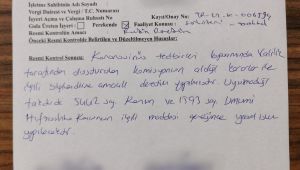 İşletme Sahibinin Adı Soyadı
Vergi Dairesi ve Vergi - T.C. Numarası
İşyeri Açma ve Çalışma Ruhsatı No
Kayıt/Onay No: TR-
Gıda Üreten İşyeri
Faaliyet Konusu:
Resmi Kontrolün Amacı
Rutin Denetim
Önceki Resmi Kontrolde Belirtilen ve Düzeltilmeyen Hususlar:
Resmi Kontrol Sonucu: Koronavirüs tedbirleri kapsamında Valilik
tarafından oluşturulan komisyonun aldığı kararlar ile
ilgili işyerlerinde denetim yapılmıştır. Uyulmadığı
takdirde 5442 sy. Kanun ve 1593 sy. Umumi
Hıfzıssıhha Kanunun ilgili maddesi gereğince yasal işlem
yapılacaktır.